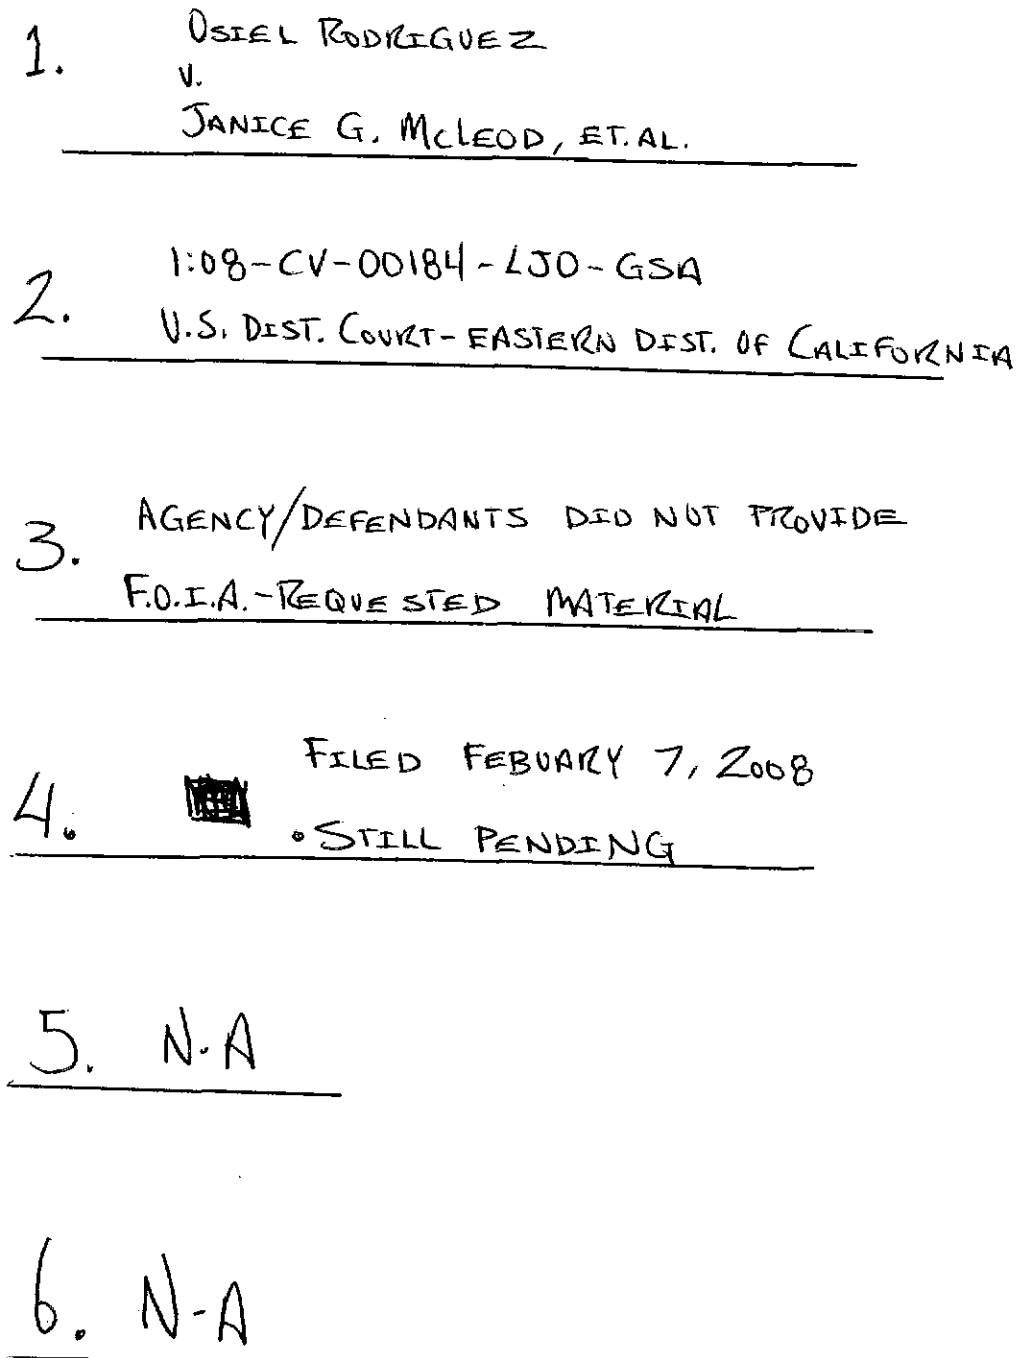 1. OSIEL RODRIGUEZ
V.
JANICE G. MCLEOD, ET.AL.
2. 1:08-CV-00184-LJO-GSA
U.S. DIST. COURT-EASTERN DIST. OF CALIFORNIA
3. AGENCY/DEFENDANTS DID NOT PROVIDE
F.O.I.A.-REQUESTED MATERIAL
4. FILED FEBUARY 7, 2008
• STILL PENDING
5. N.A
6. N-A